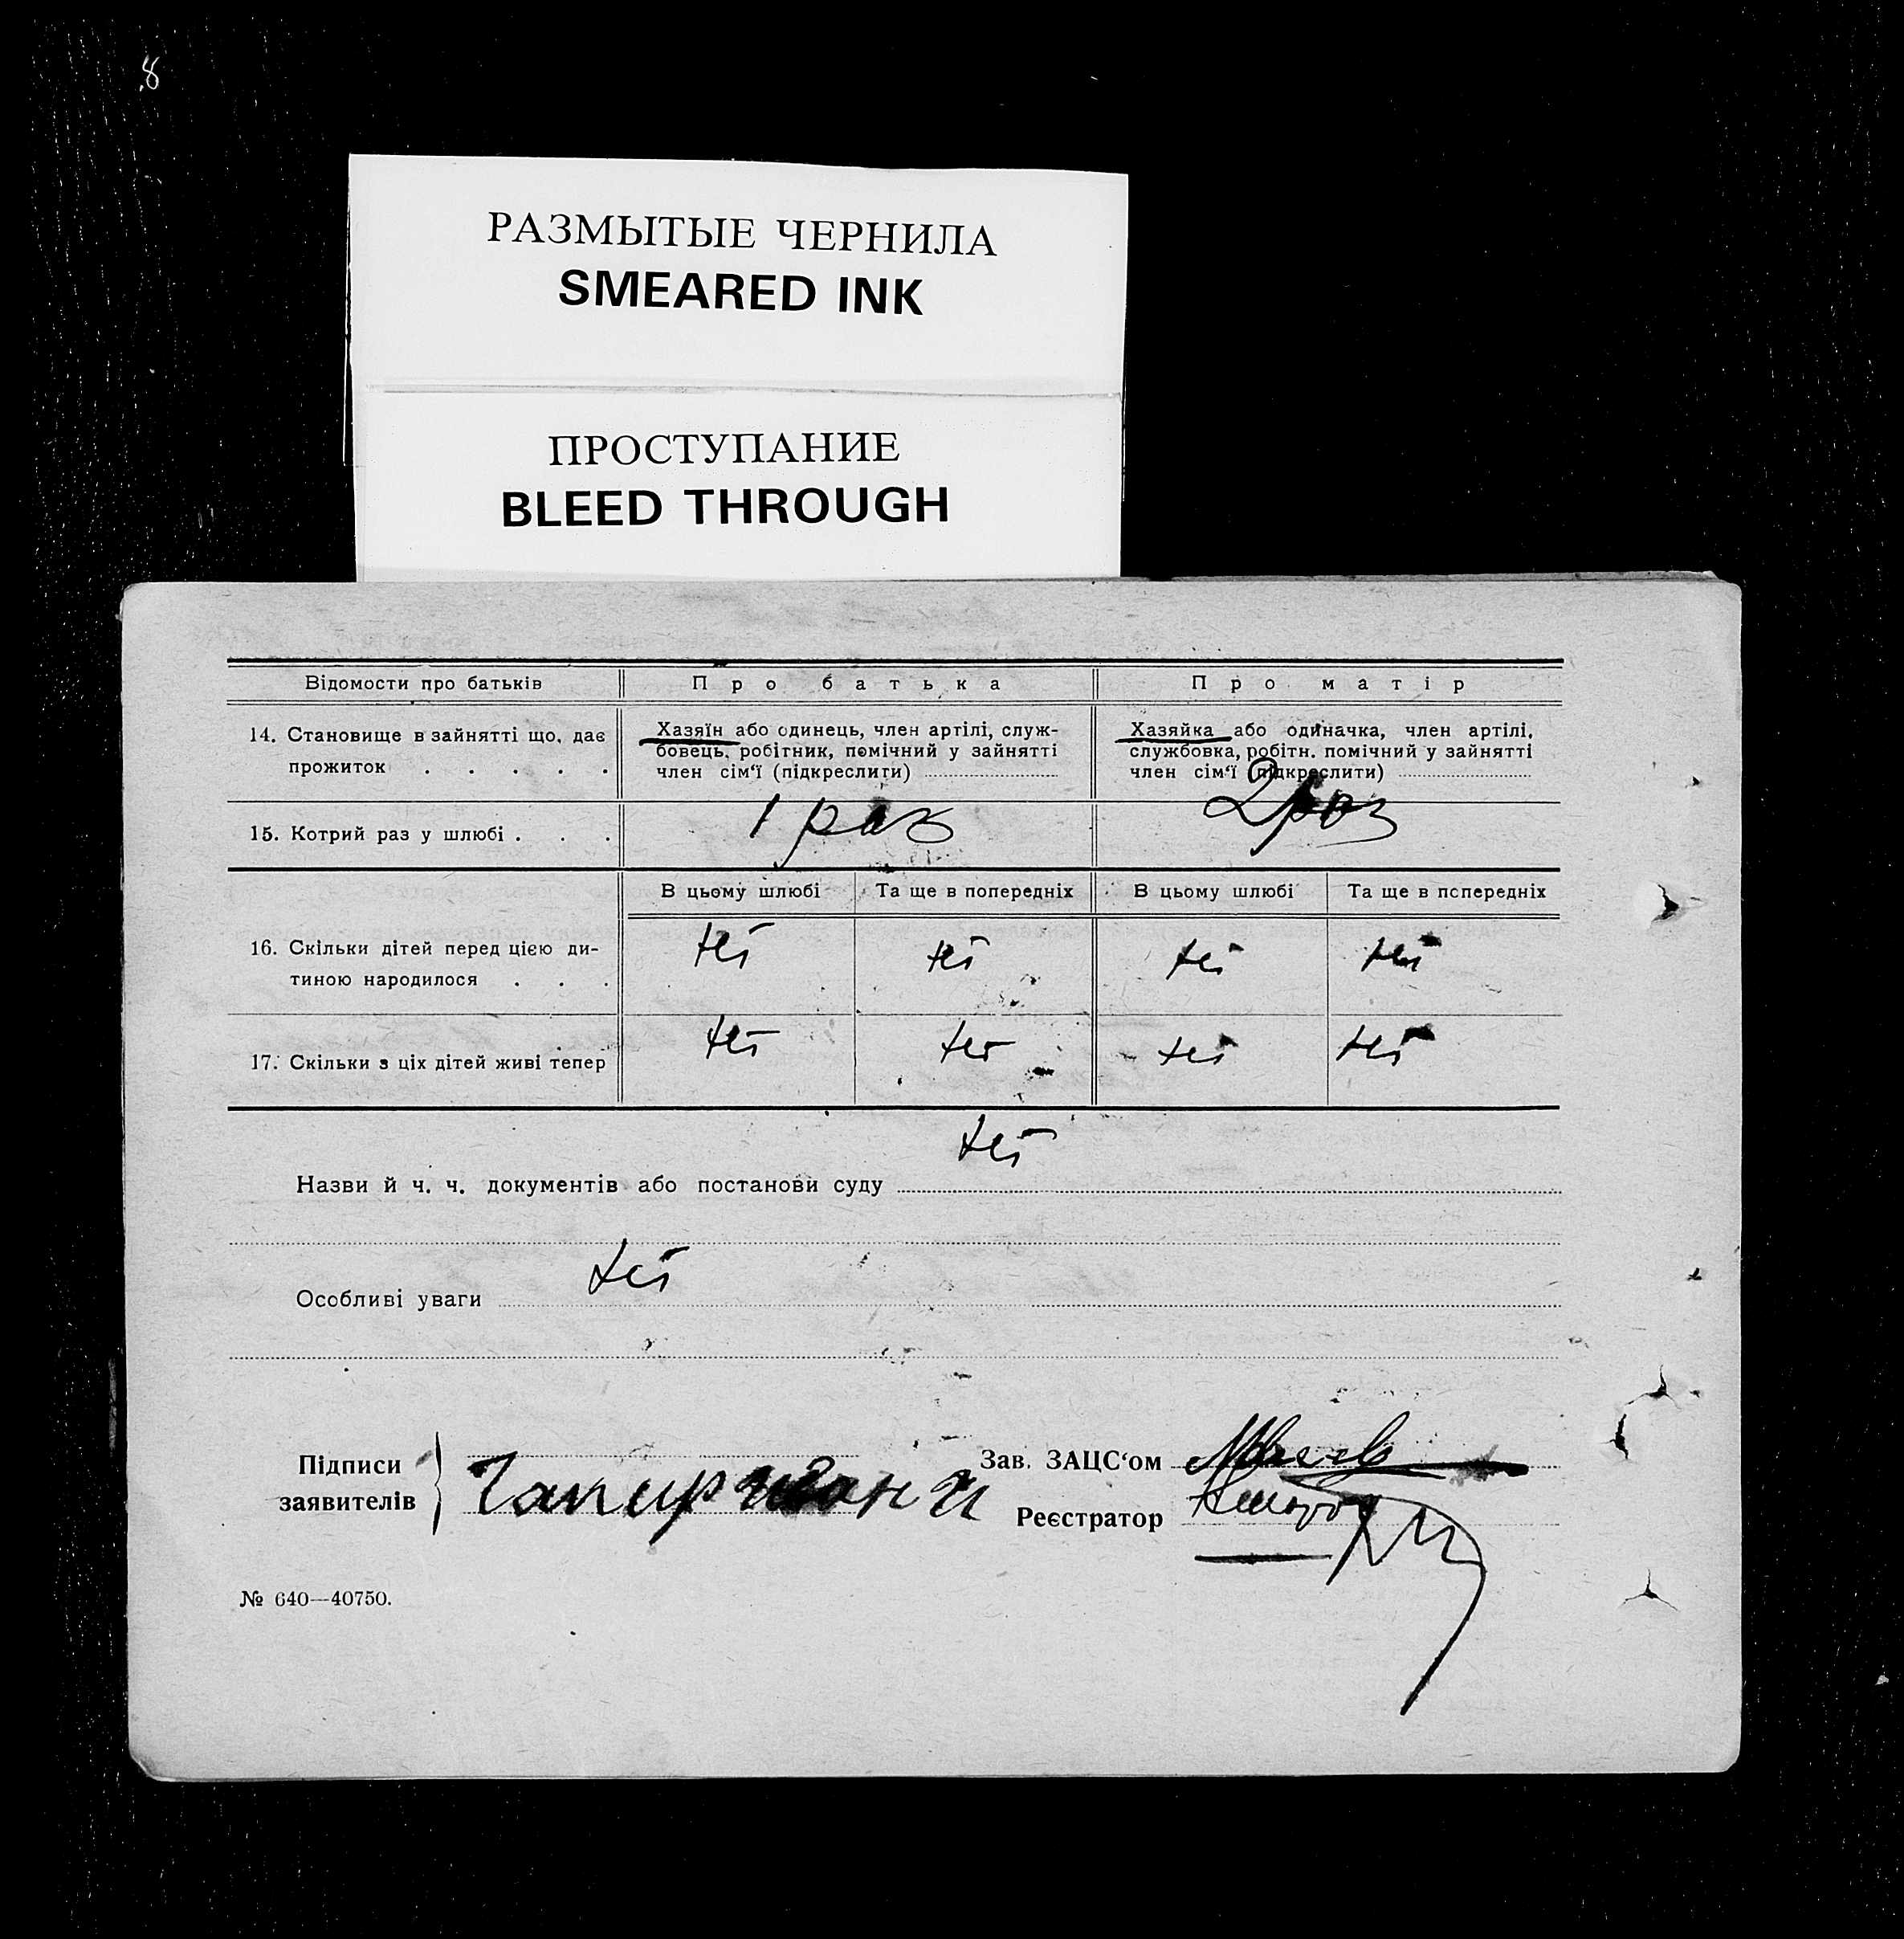 8
РАЗМЫТЫЕ ЧЕРНИЛА
SMEARED INK
ПРОСТУПАНИЕ
BLEED THROUGH
Відомости про батьків Про батька Про матір
14. Становище в зайнятті що, дає прожиток . . . . .
Хазяїн або одинець, член артілі, служ-
бовець, робітник, помічний у зайнятті
член сім‘ї (підкреслити)
Хазяйка або одиначка, член артілі,
службовка, робітн. помічний у зайнятті
член сім‘ї (підкреслити)
15. Котрий раз у шлюбі . . . 1 раз 2 раз
В цьому шлюбі Та ще в попередніх В цьому шлюбі Та ще в попередніх
16. Скільки дітей перед цією ди-
тиною народилося . . .
17. Скільки з ціх дітей живі тепер
Назви й ч. ч. документів або постанови суду
Особливі уваги
Підписи
заявителів
Зав. ЗАЦС‘ом
Реєстратор
№ 640—40750.